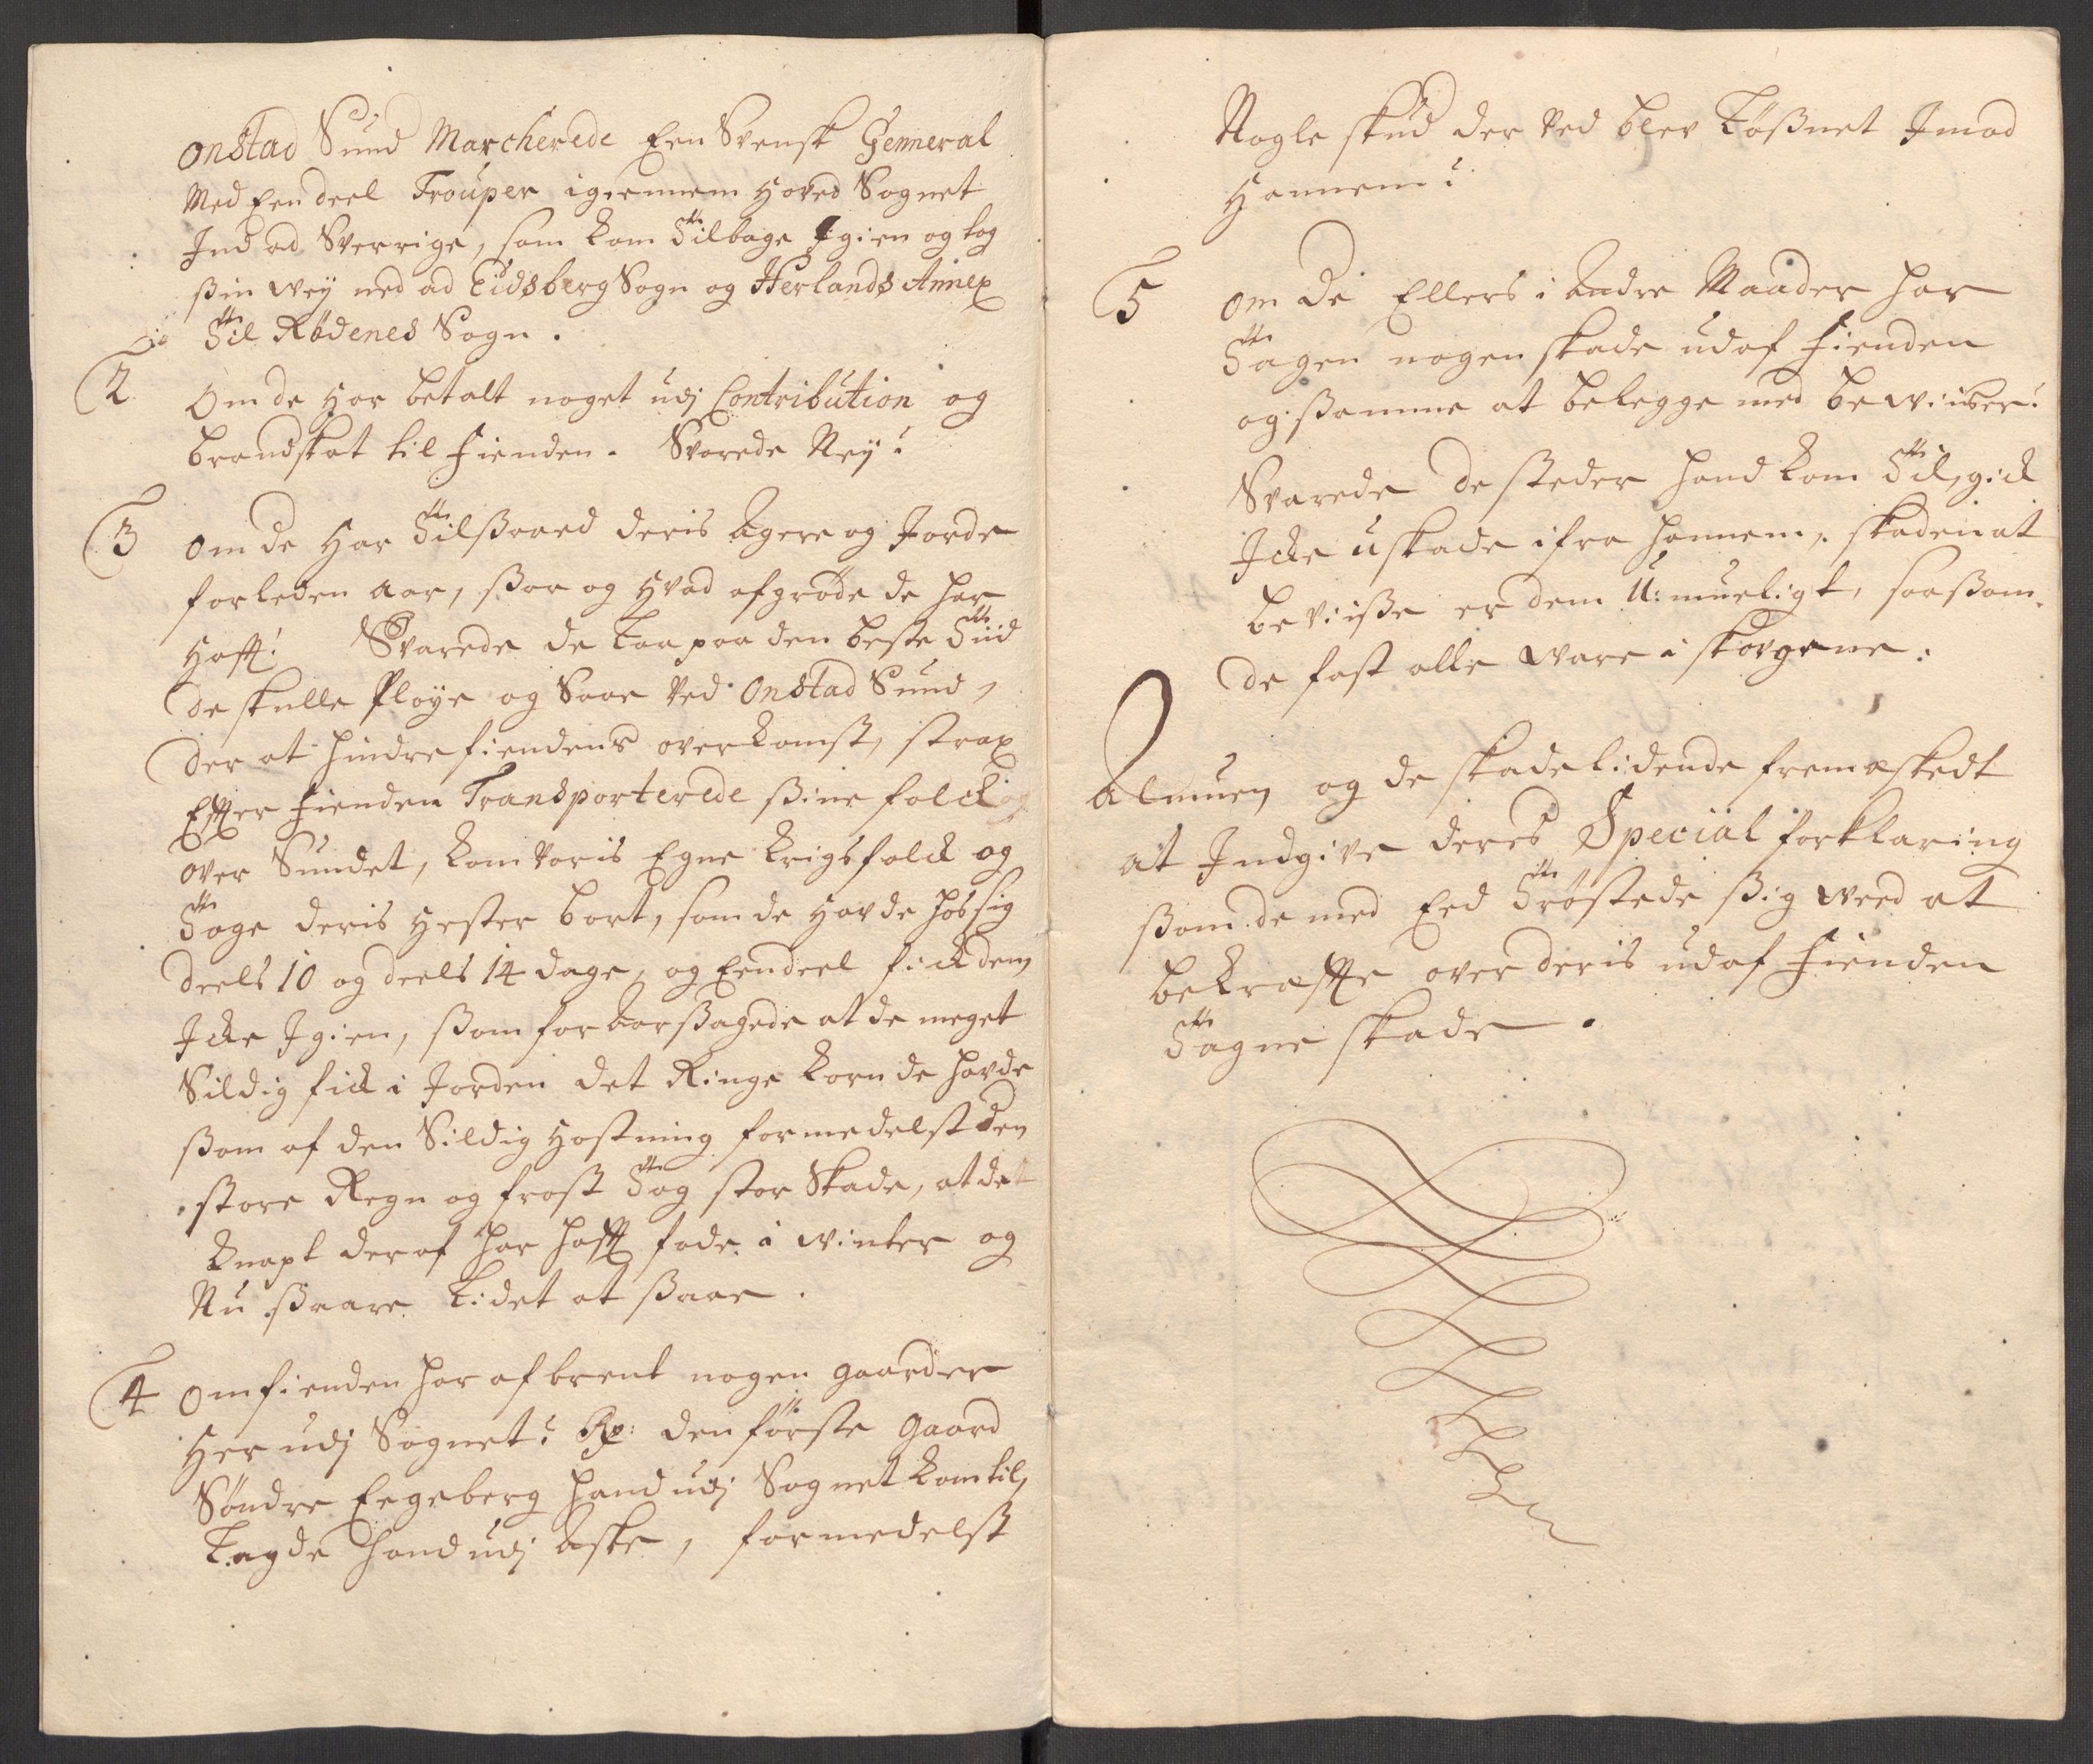 Onstad Sund Marcherede Een Svensk Genneral
Med Een deel Trouper igiennem Hoved Sognet
Ind ad Sverrige, som kom Tilbage Igien og tog
ßin weÿ ned ad Eidsberg Sogn og Herlands Annex
Til Rødenes Sogn.
2 Om de Har betalt noget udj Contribution og
brandskat til fienden. Svarede Neÿ:
3 Om de Har Tilßaaed deris Agere og Jorde
forleden aar, ßaa og Hvad afgrøde de har
Hafft! Svarede de laa paa den beste Tiid
de skulle Pløÿe og Saae ved Onstad Sund,
der at hindre fiendens overkomst, strax
Effter fienden Transporterede ßine folck
over Sundet, kom voris Egne krigsfolck og
Toge deris Hester bort, som de Havde hos sig
deels 10 og deels 14 dage, og Eendeel fick dem
Icke Igien, ßom foraarßagede at de meget
Sildig fick i Jorden det Ringe korn de havde
ßom af den Sildig Høstning formedelst den
store Regn og frost Tog stor Skade, at det
knapt deraf har hafft føde i winter og
Nu ßvare lidet at ßaae.
4 Om fienden har afbrent nogen gaarder
Her udj Sognet: Rx: den første gaard
Søndre Eegeberg hand udj Sognet kom til,
Lagde hand udj Aske, formedelst
Nogle skud der ved blev Løßnet Imod
Hannem:
5 Om de Ellers i Andre Maader har
Tagen nogen skade udaf fienden
og ßamme at belegge med bewiiser:
Svarede de steder hand kom Til, gick
Icke uskade ifra hannem, skaden at
beviiße er dem U:muueligt, saaßom
de fast alle ware i skovgene:
Almuen og de skadelidende fremæskedt
at Indgive deres Special forklaring
ßom de med Eed Trøstede ßig weed at
bekræffte over deris udaf fienden
Tagne skade.